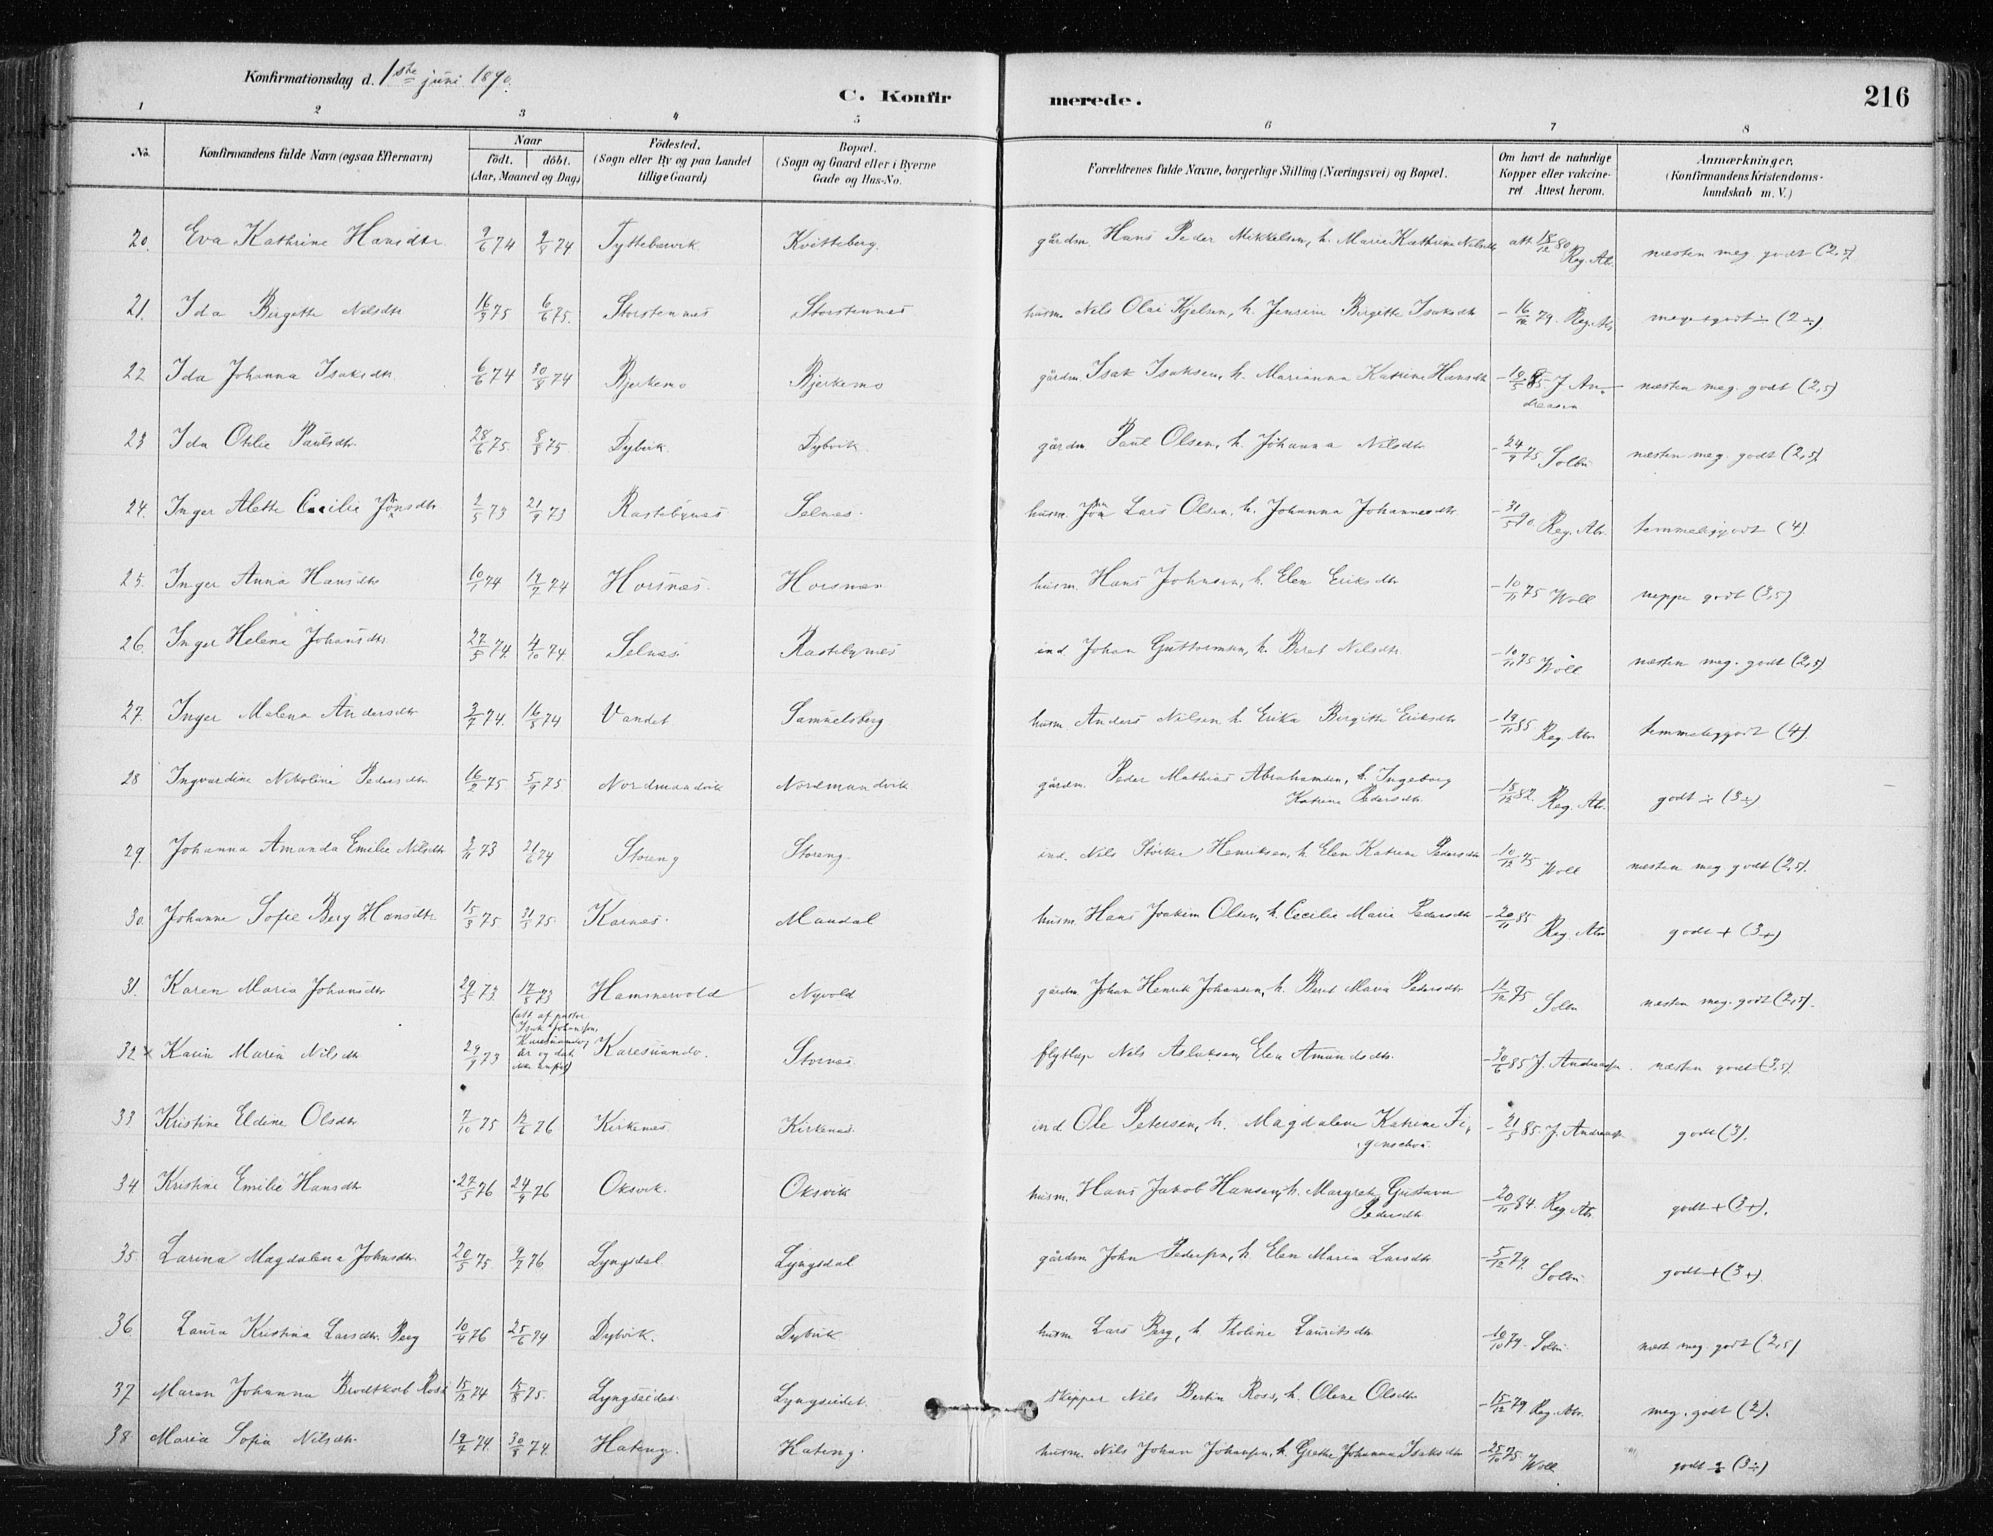 Konfirmationsdag d. 1ste juni 1890.
C. Konfirmerede.
216
1 2 3 4 5 6 7 8
No. Konfirmandens fulde Navn (ogsaa Efternavn) Naar födt. döbt. (Aar, Maaned og Dag) Födested. (Sogn eller By og paa Landet tillige Gaard) Bopæl. (Sogn og Gaard eller i Byerne Gade og Hus-No. Forældrenes fulde Navne, borgerlige Stilling (Næringsvei) og Bopæl. Om havt de naturlige Kopper eller vakcineret. Attest herom. Anmærkninger. (Konfirmandens Kristendomskundskab m. V.)
20. Eva Kathrine Hansdtr. 9/6 74 9/8 74 Tyttebærvik Kvitteberg. gårdm. Hans Peder Mikkelsen, h. Marie Kathrine Nilsdtr. att. 18/12 80 Reg. Abr. næsten meg. godt (2,5).
21. Ida Birgitte Nilsdtr. 16/3 75 6/6 75. Storstennes Storstennes husm. Nils Olai Kjelsen, h. Jensine Birgitte Isaksdtr. - 16/12 79. Reg. Abr. meget godt ÷ (2÷).
22 Ida Johanna Isaksdtr. 6/6 74 30/8 74 Bjerkemo Bjerkemo gårdm. Isak Isaksen, h. Marianna Katrine Hansdtr. - 10/5 85. J. Andreasen næsten meg. godt (2,5)
23 Ida Otilie Paulsdtr. 28/6 75. 8/8 75 Dybvik Dybvik gårdm. Paul Olsen, h. Johanna Nilsdtr. - 24/9 75 Solbu næsten meg. godt (2,5).
24. Inger Alette Cecilie Jonsdtr. 2/5 73 21/9 73 Rastebynes Selnes. husm. Jon Lars Olsen, h. Johanna Johannesdtr. - 31/5 90. Reg. Abr. temmelig godt (4).
25. Inger Anna Hansdtr. 10/1 74 12/7 74 Horsnes. Horsnes husm. Hans Johnsen, h. Elen Eriksdtr. - 10/11 75 Woll neppe godt (3,5)
26. Inger Helena Johansdtr. 27/5 74. 4/10 74 Selnes. Rastebynes ind. Johan Guttormsen, h. Beret Nilsdtr. - 10/11 75 Woll næsten meg. godt (2,5)
27. Inger Malena Andersdtr. 3/7 74. 16/8 74 Vandet Samuelsberg husm. Anders Nilsen, h. Erika Birgitte Eriksdtr. - 19/11 85 Reg. Abr. temmelig godt (4).
28 Ingvardine Nikoline Pedersdtr. 16/2 75 5/9 75 Nordmandvik Nordmandvik gårdm. Peder Mathias Abrahamsen, h. Ingeborg Katrine Pedersdtr. - 18/12 82. Reg. Abr. godt ÷ (3÷)
29. Johanna Amanda Emilie Nilsdtr. 2/11 73 21/6 74 Storeng Storeng. ind. Nils Störker Henriksen, h. Elen Katrine Pedersdtr. - 10/12 75 Woll næsten meg. godt (2,5).
30. Johanne Sofie Berg Hansdtr. 15/3 75 31/5 75. Karnes. Mandal husm. Hans Joakim Olsen, h. Cecilie Maria Pedersdtr. - 20/11 85 Reg. Abr. godt + (3+)
31. Karen Maria Johansdtr. 29/3 73. 17/8 73 Hammervold Nyvold gårdm. Johan Henrik Johansen, h. Beret Maria Pedersdtr. - 12/12 75 Solbu næsten meg. godt (2,5).
32 x Karin Maria Nilsdtr. 29/9 73 (att. af pastor Isak Johansen, Karesuando, år og dat. ikke anført) Karesuando. Stornes flytlap Nils Aslaksen, Elen Amundsdtr. - 30/6 85 J. Andreasen. næsten godt (3,5)
33 Kristine Eldine Olsdtr. 7/10 75 12/6 76 Kirkenes. Kirkenes. ind Ole Petersen, h. Magdalene Katrine Figenschou - 21/5 85. J. Andreasen godt (3).
34 Kristine Emilie Hansdtr. 27/5 76 24/9 76 Oksvik. Oksvik husm. Hans Jakob Hansen, h. Margrete Gustava Pedersdtr. - 20/11 84. Reg. Abr. godt + (3+).
35. Larina Magdalena Johnsdtr. 20/5 75. 9/7 76 Lyngsdal. Lyngsdal gårdm. John Pedersen, h. Elen Maria Larsdtr. - 5/12 79. Solbu godt + (3+).
36. Laura Kristina Larsdtr. Berg 10/4 76 25/6 74 Dybvik. Dybvik husm. Lars Berg, h. Tholine Lauritsdtr. - 10/10 79. Solbu næst. meg. godt (2,5)
37. Maren Johanna Brodtkorb Ross 15/12 74 15/8 75. Lyngseidet. Lyngseidet. skipper Nils Bertin Ross, h. Olene Olsdtr. - 15/12 79 Reg. Abr. meg. godt (2).
38. Maria Sofia Nilsdtr. 12/7 74. 30/8 74. Hateng. Hateng. husm. Nils Johan Johansen, h. Grethe Johanna Isaksdtr. - 25/10 75 Woll godt ÷ (3÷)